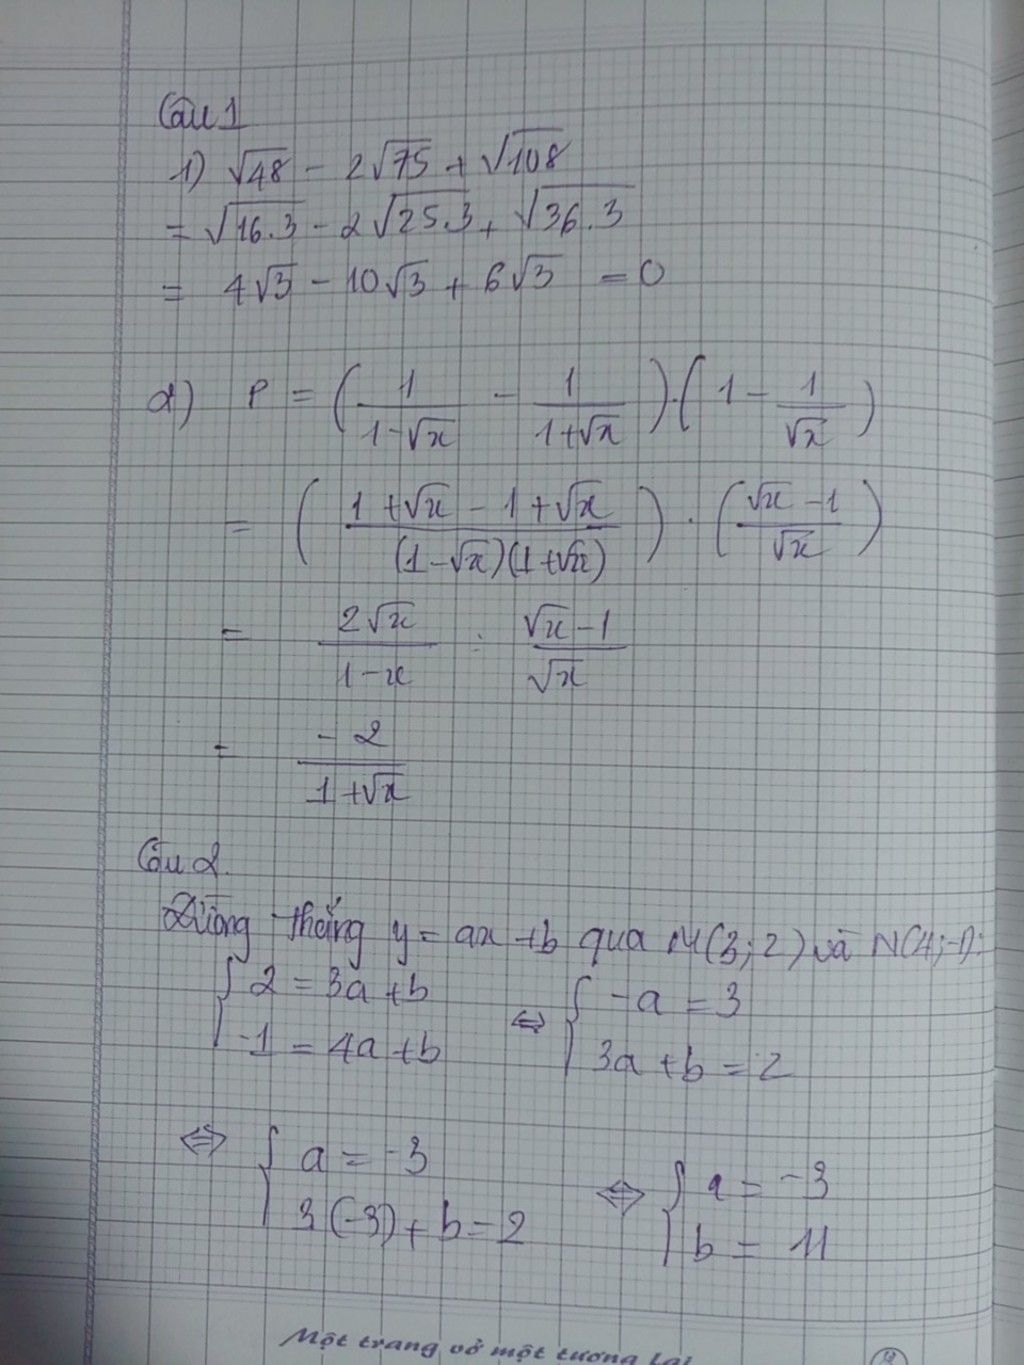 Câu 1
1) √48 - 2√75 + √108
= √16.3 - 2√25.3 + √36.3
= 4√3 - 10√3 + 6√3 = 0
2) P = (1/(1-√x) - 1/(1+√x)).(1 - 1/√x)
= ((1+√x - 1+√x)/((1-√x)(1+√x))) . ((√x - 1)/√x)
= 2√x/(1-x) . (√x - 1)/√x
= -2/(1+√x)
Câu 2.
Đường thẳng y = ax + b qua M(3; 2) và N(4; -1):
{ 2 = 3a + b ⇔ { -a = 3
-1 = 4a + b 3a + b = 2
⇔ { a = -3 ⇔ { a = -3
3(-3) + b = 2 b = 11
Một trang vở một tương lai